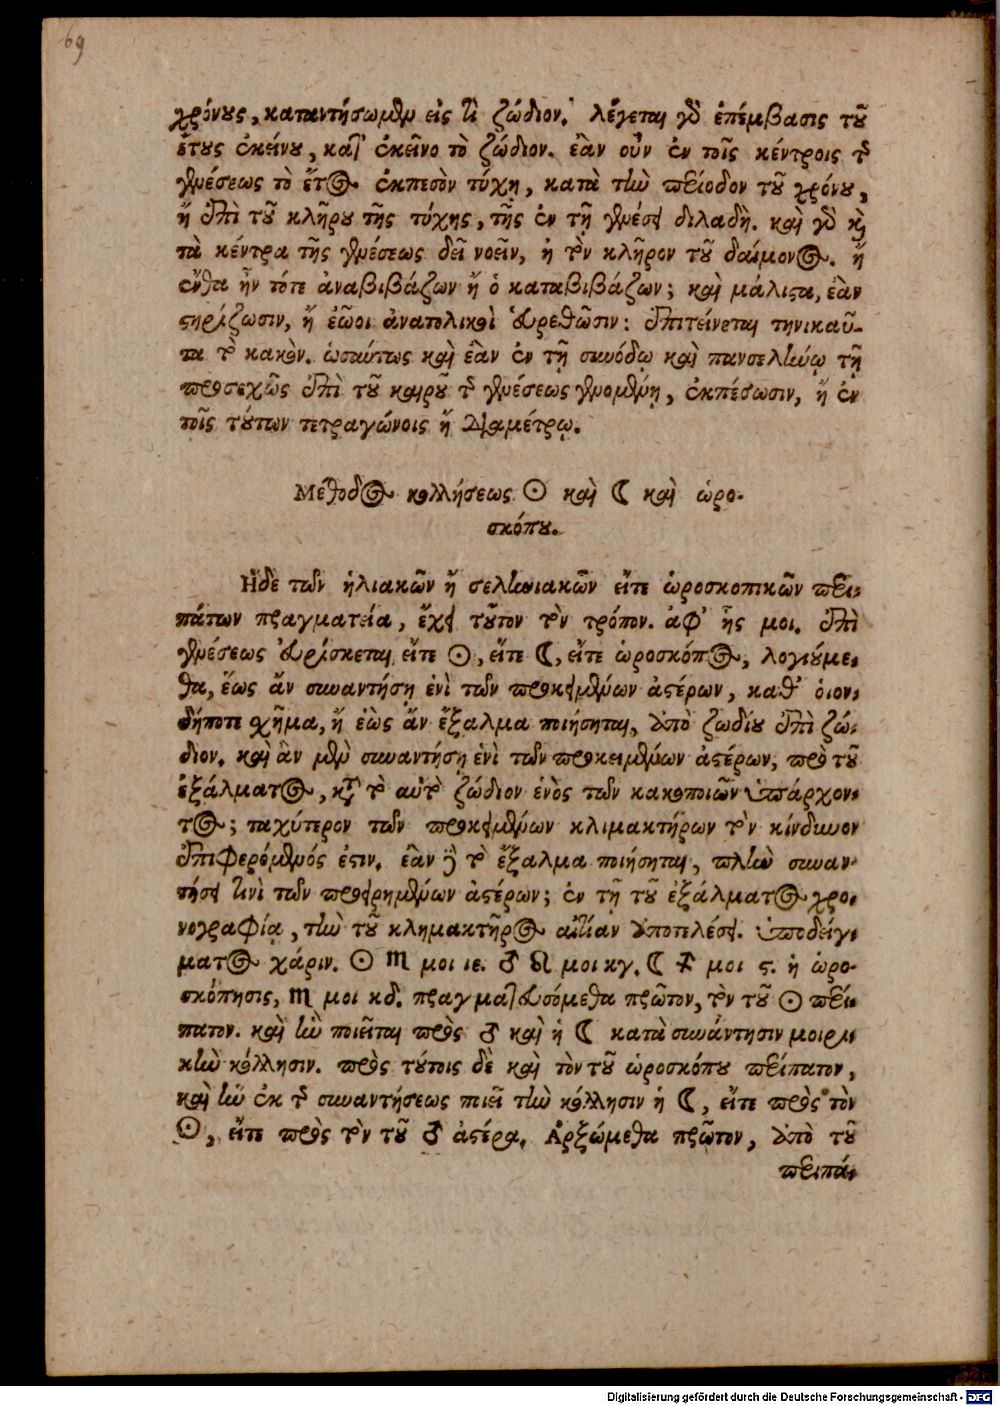 69
χρόνους, καταντήσωμεν εἰς τὶ ζώδιον. λέγεται γὸ ἐπέμβασις τοῦ
ἔτους ἐκείνου, κατ' ἐκεῖνο τὸ ζώδιον. ἐὰν οὖν ἐν τοῖς κέντροις τῆς
γενέσεως τὸ ἔτος ἐκπεσὸν τύχῃ, κατὰ τὴν περίοδον τοῦ χρόνου,
ἢ ἐπὶ τοῦ κλήρου τῆς τύχης, τῆς ἐν τῇ γενέσει διλαδὴ. καὶ γὸ καὶ
τὰ κέντρα τῆς γενέσεως δεῖ νοεῖν, ἢ τὸν κλῆρον τοῦ δαίμονος. ἢ
ἔνθα ἦν τότε ἀναβιβάζων ἢ ὁ καταβιβάζων; καὶ μάλιστα, ἐὰν
στηρίζωσιν, ἢ ἑῶοι ἀνατολικοὶ εὑρεθῶσιν: ἐπιτείνεται τηνικαῦ-
τα τὸ κακὸν. ὡσαύτως καὶ ἐὰν ἐν τῇ συνόδῳ καὶ πανσελήνῳ τῇ
προσεχῶς ἐπὶ τοῦ καιροῦ τῆς γενέσεως γενομένῃ, ἐκπέσωσιν, ἢ ἐν
τοῖς τούτων τετραγώνοις ἢ διαμέτρῳ.
Μέθοδος κολλήσεως ☉ καὶ ☾ καὶ ὡρο-
σκόπου.
Ηδὲ τῶν ἡλιακῶν ἢ σεληνιακῶν εἴτε ὡροσκοπικῶν περι-
πάτων πραγματεία, ἔχει τοῦτον τὸν τρόπον. ἀφ' ἧς μοι. ἐπὶ
γενέσεως εὑρίσκεται εἴτε ☉, εἴτε ☾, εἴτε ὡροσκόπος, λογιούμε-
θα, ἕως ἂν συναντήσῃ ἑνὶ τῶν προκειμένων ἀστέρων, καθ' ὁιον-
δήποτε σχῆμα, ἢ ἑὼς ἂν ἔξαλμα ποιήσηται, ἀπὸ ζωδίου ἐπὶ ζώ-
διον. καὶ ἂν μὲν συναντήσῃ ἑνὶ τῶν προκειμένων ἀστέρων, πρὸ τοῦ
ἐξάλματος, κατὰ τὸ αὐτὸ ζώδιον ἑνὸς τῶν κακοποιῶν ὑπάρχον-
τος; ταχύτερον τῶν προκειμένων κλιμακτήρων τὸν κίνδυνον
ἐπιφερόμενός ἐστιν. ἐὰν δὲ τὸ ἔξαλμα ποιήσηται, πλὴν συναν-
τήσει τινὶ τῶν προειρημένων ἀστέρων; ἐν τῇ τοῦ ἐξάλματος χρο-
νογραφίᾳ, τὴν τοῦ κλημακτῆρος αἰτίαν ἀποτελέσει. ὑποδείγ-
ματος χάριν. ☉ ♏ μοι ιε. ♂ ♌ μοι κγ. ☾ ♐ μοι ς. ἡ ὡρο-
σκόπησις, ♏ μοι κδ. πραγματευσόμεθα πρῶτον, τὸν τοῦ ☉ περί-
πατον. καὶ ἣν ποιεῖται πρὸς ♂ καὶ ἡ ☾ κατὰ συνάντησιν μοιρι-
κὴν κόλλησιν. πρὸς τούτοις δὲ καὶ τὸν τοῦ ὡροσκόπου περίπατον,
καὶ ἣν ἐκ τῆς συναντήσεως ποιεῖ τὴν κόλλησιν ἡ ☾, εἴτε πρὸς τὸν
☉, εἴτε πρὸς τὸν τοῦ ♂ ἀστέρα. Ἀρξώμεθα πρῶτον, ἀπὸ τοῦ
περιπά-
Digitalisierung gefördert durch die Deutsche Forschungsgemeinschaft - DFG